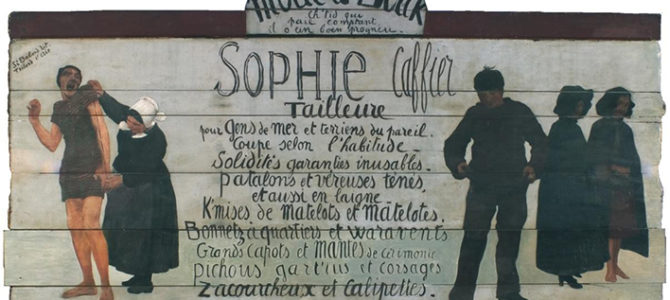 à l'Duck
ch'ti d qui
paie comptant
il o ein boen progneu.
SOPHIE Caffier
Tailleure
pour Gens de mer et terriens du pareil.
Coupe selon l'habitude.
Solidités garanties inusables.
Patalons et véreuses ténés,
et aussi en laigne
K'mises de Matelots et Matelotes.
Bonnets à quartiers et waravents
Grands Capots et Mantes de cérémonie
pichous gart'ens et corsages
Zacourcheux et Calipettes.